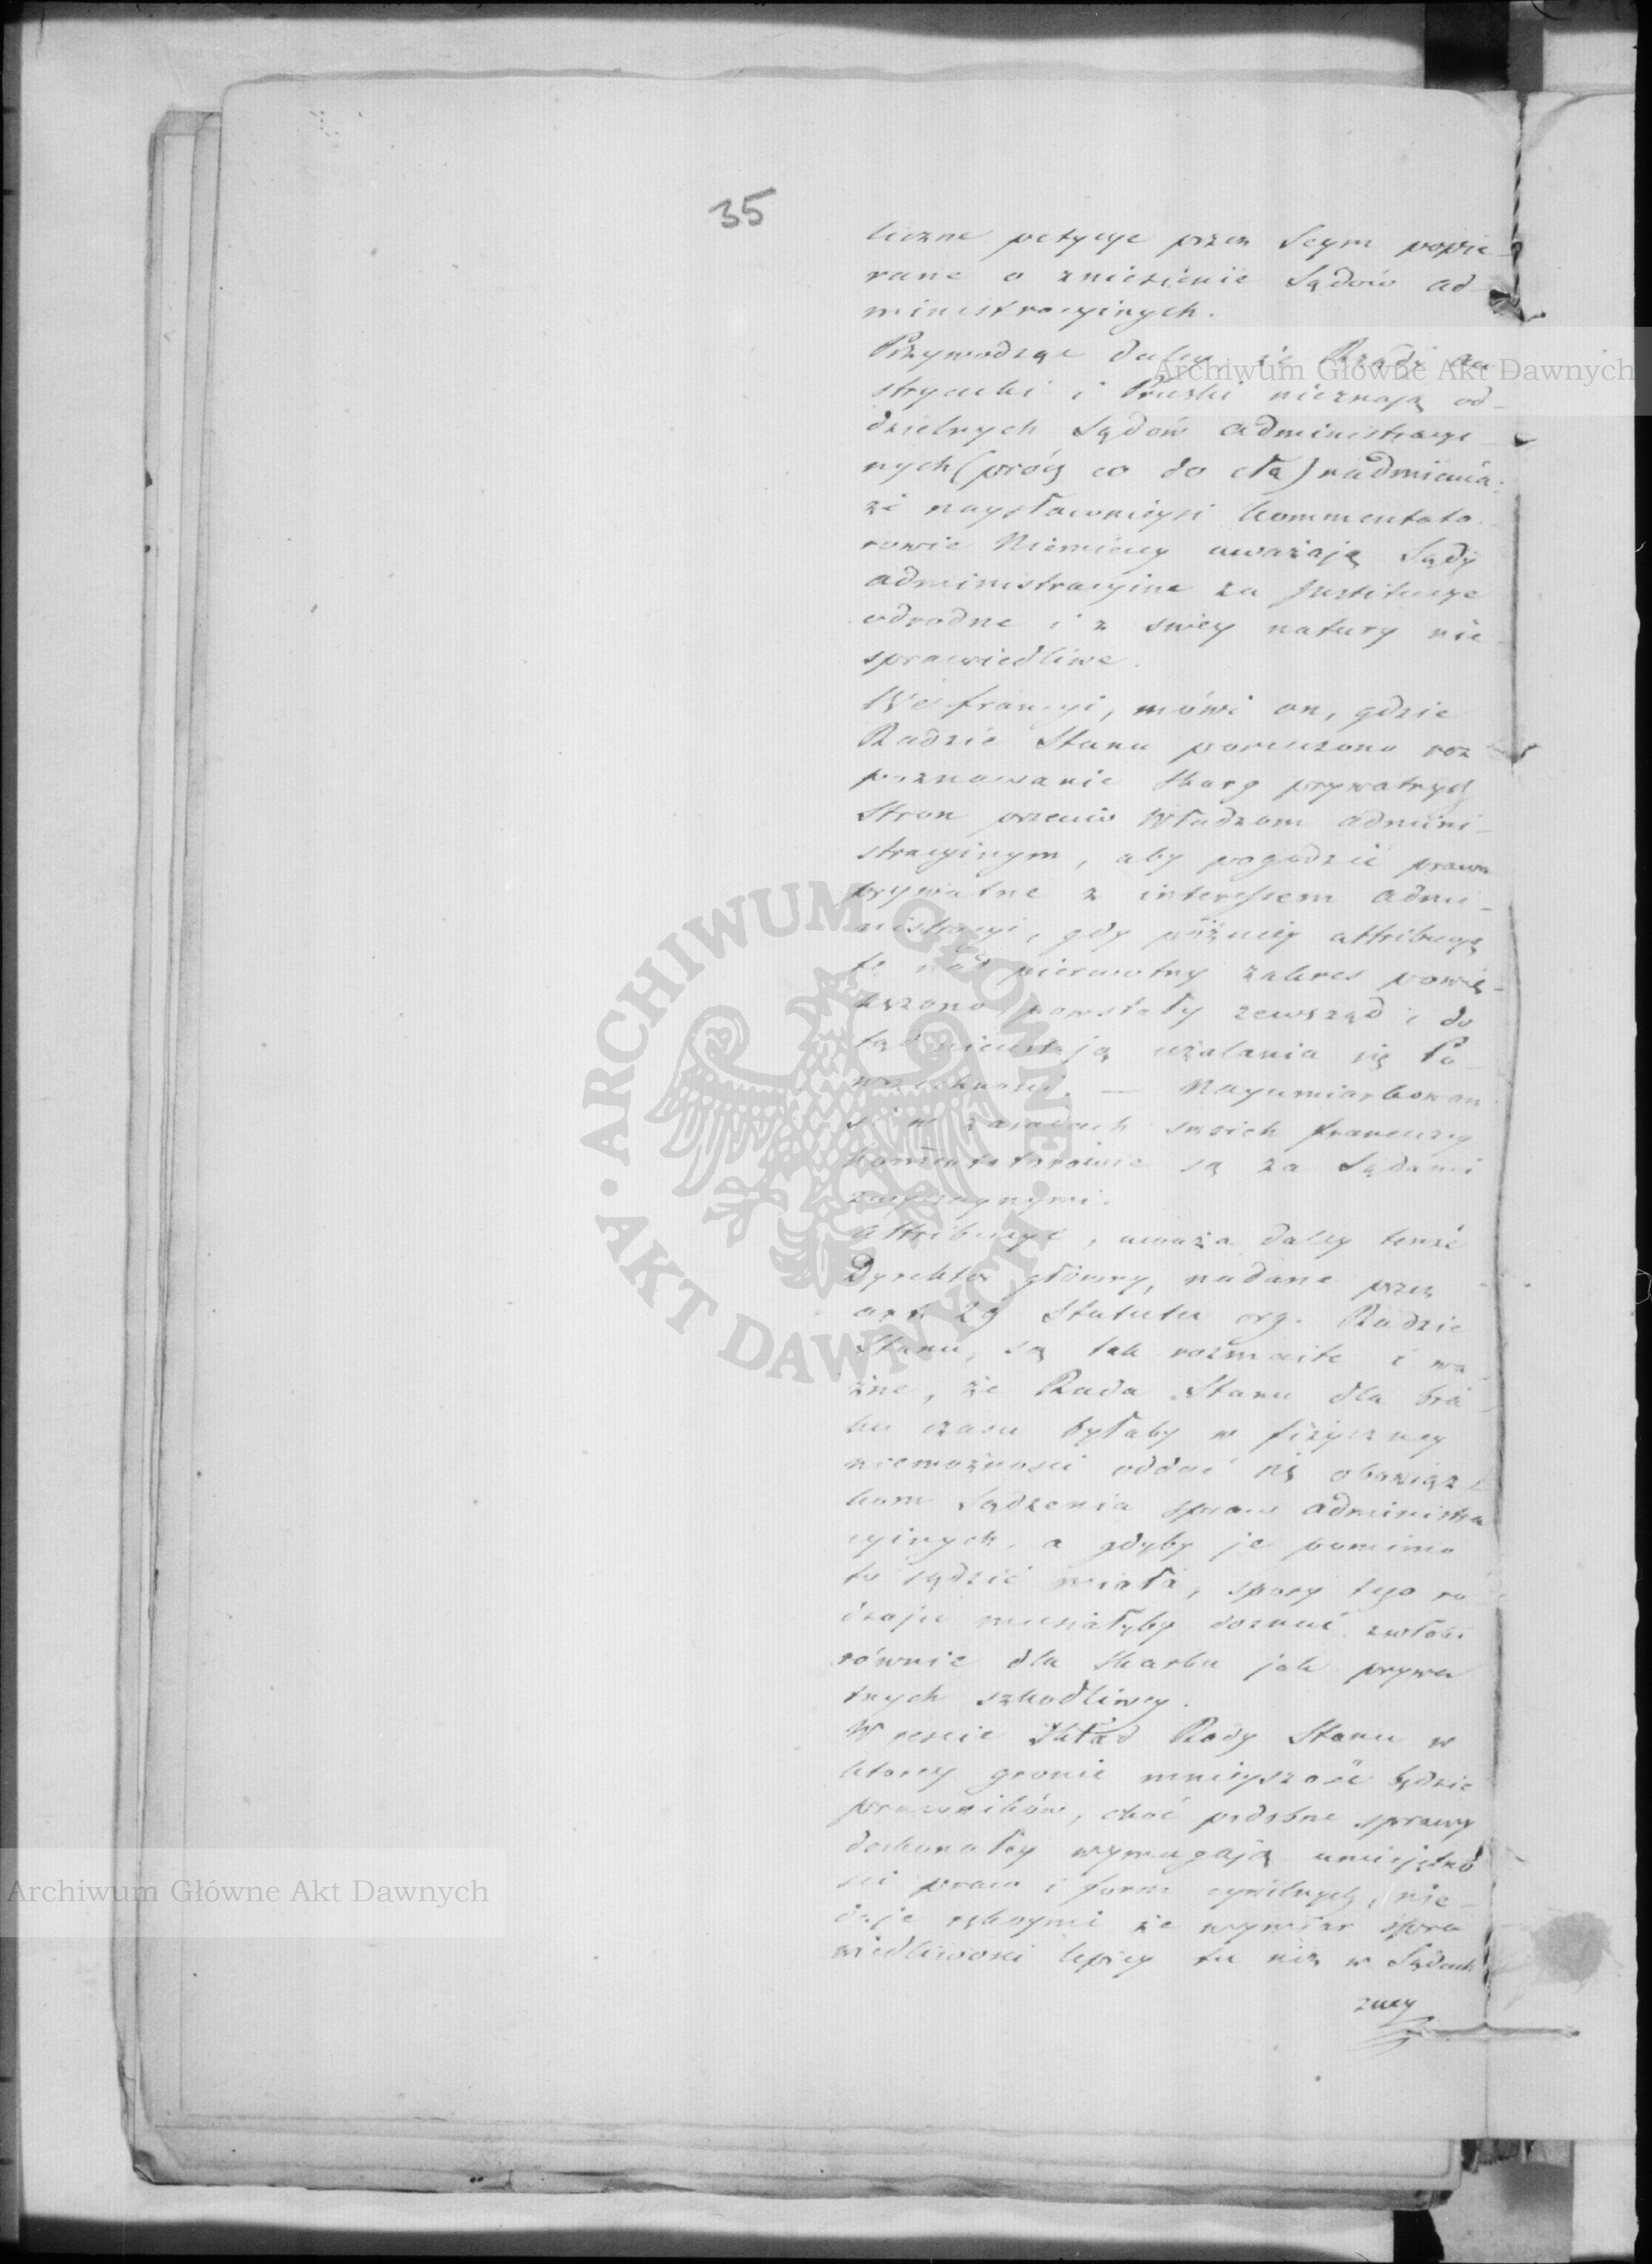 35
liczne petycye przez Seym popie-
rane o zniesienie Sądów ad-
ministracyinych.
Przywodząc daley, że Rządy Au-
stryacki i Pruski nieznają od-
dzielnych Sądów administracyi-
nych (prócz co do cła) nadmienia:
że naysławnieysi kommentato-
rowie Niemieccy uważają Sądy
administracyine za Instytucye
odrodne i z swey natury nie-
sprawiedliwe.
We francyi, mówi on, gdzie
Radzie Stanu poruczono roz-
poznawanie skarg prywatnych
Stron przeciw Władzom admini-
stracyinym, aby pogodzić prawa
prywatne z interessem admi-
nistracyi, gdy późniey attribucyę
tę nad pierwotny zakres powię-
kszono, powstały zewsząd i do
tąd nieustają użalania się Po-
wszechności. — Nayumiarkowan
si w zasadach swoich francuzcy
kommentatorowie są za Sądami
zwyczaynymi.
Attribucye, uważa daley tenże
Dyrektor główny, nadane przez
art. 29 Statutu org. Radzie
Stanu, są tak rozmaite i wa-
żne, że Rada Stanu dla bra-
ku czasu byłaby w fizyczney
niemożności oddać się obowiąz-
kom sądzenia spraw administra
cyinych, a gdyby je pomimo
to sądzić miała, spory tego ro-
dzaju musiałyby doznać zwłoki
równie dla skarbu jak prywa
tnych szkodliwey.
Wreszcie skład Rady Stanu w
którey gronie mnieyszość będzie
prawników, choć podobne sprawy
doskonałey wymagają umiejętno
ści praw i form cywilnych, nie-
daje rękoymi że wymiar spra
wiedliwości lepiey tu niż w Sądach
zwy
Archiwum Główne Akt Dawnych
Archiwum Główne Akt Dawnych
ARCHIWUM GŁÓWNE AKT DAWNYCH